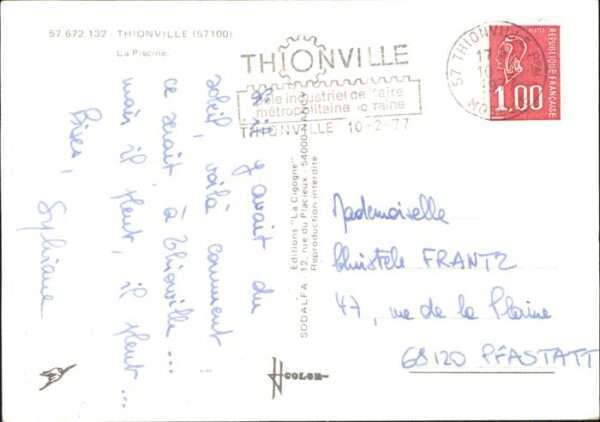 57.672.132 - THIONVILLE (57100)
La Piscine.
THIONVILLE
industriel de l'aire
métropolitaine lorraine
THIONVILLE 10-2-77
57 THIONVILLE
MOSELLE
REPUBLIQUE FRANÇAISE
1,00
S'il y avait du
soleil, voilà comment
ce serait à Thionville ...
mais il pleut, il pleut ...
Bises,
Sylviane
Editions "La Cigogne"
SODALFA - 12, rue du Placieux - 54000 NANCY
Reproduction interdite
COLOR
Mademoiselle
Christèle FRANTZ
47, rue de la Plaine
68120 PFASTATT